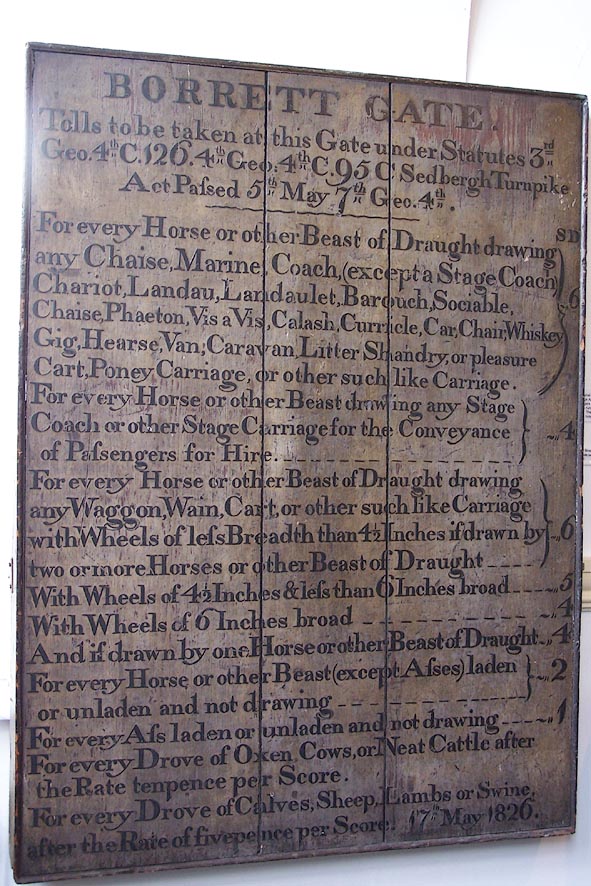 BORRETT GATE.
Tolls to be taken at this Gate under Statutes 3rd
Geo. 4th C. 126. 4th Geo. 4th C. 95 C Sedbergh Turnpike
Act Paſsed 5th May 7th Geo. 4th.
S D
For every Horse or other Beast of Draught drawing
any Chaise, Marine, Coach, (except a Stage Coach)
Chariot, Landau, Landaulet, Barouch, Sociable, 6
Chaise, Phaeton, Vis a Vis, Calash, Curricle, Car, Chair, Whiskey
Gig, Hearse, Van, Caravan, Litter Shandry, or pleasure
Cart, Poney Carriage, or other such like Carriage.
For every Horse or other Beast drawing any Stage
Coach or other Stage Carriage for the Conveyance ~„4
of Paſsengers for Hire.
For every Horse or other Beast of Draught drawing
any Waggon, Wain, Cart, or other such like Carriage
with Wheels of leſs Breadth than 4½ Inches if drawn by ~„6
two or more Horses or other Beast of Draught
With Wheels of 4½ Inches & leſs than 6 Inches broad ~„5
With Wheels of 6 Inches broad ~„4
And if drawn by one Horse or other Beast of Draught ~„4
For every Horse or other Beast (except Aſses) laden ~„2
or unladen and not drawing
For every Aſs laden or unladen and not drawing ~„1
For every Drove of Oxen, Cows, or Neat Cattle after
the Rate tenpence per Score.
For every Drove of Calves, Sheep, Lambs or Swine,
after the Rate of fivepence per Score. 17th May 1826.